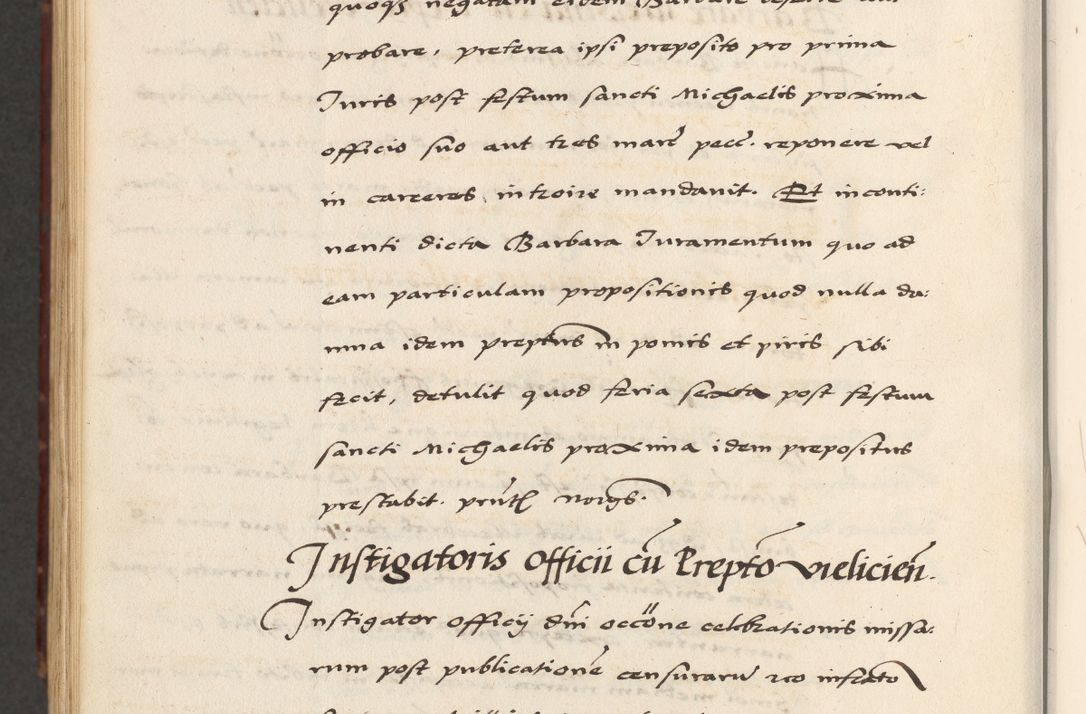 quoqz negatam eidem Barbare
probare, preterea ipsi preposito pro prima
Iuris post festum sancti Michaelis proxima
officio suo aut tres marc̃ pecc̃. reponere vel
in carceres introire mandavit. Et inconti:
nenti dicta Barbara Iuramentum quo ad
eam particulam propositionis quod nulla da:
mna idem preptus in pomis et piris sibi
fecit, detulit quod feria sexta post festum
sancti Michaelis proxima idem prepositus
prestabit. prñtƺ
Instigatoris officii cũ Preptõ vielicieñ.
Instigator officij dñi occõne celebrationis missa:
rum post publicationẽ censurarũ